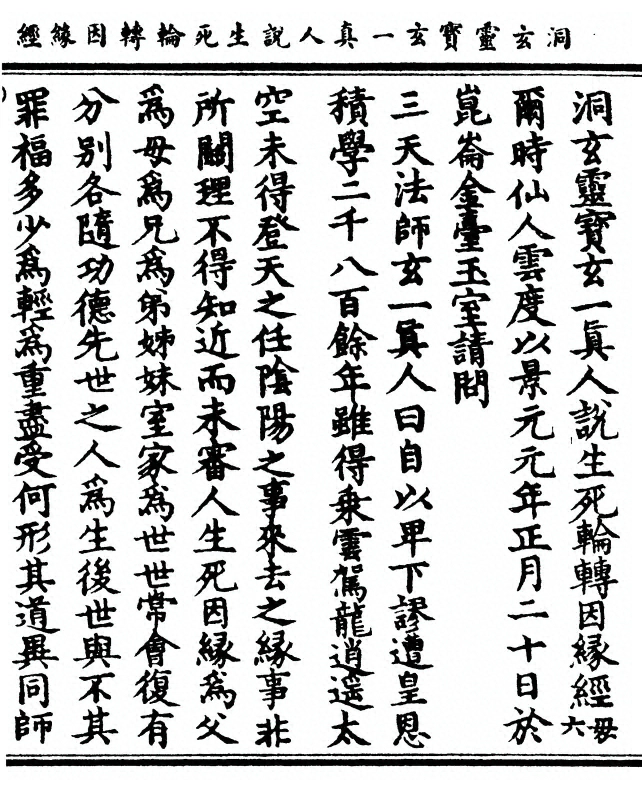 經緣因轉輪死生說人真一玄寳靈玄洞
洞玄靈寳玄一眞人説生死輪轉因縁經 毋六
爾時仙人雲度以景元元年正月二十日於
崑崙金臺玉室請問
三天法師玄一眞人曰自以卑下謬遭皇恩
積學二千八百餘年雖得乗雲駕龍逍遥太
空未得登天之任陰陽之事來去之縁事非
所關理不得知近而未審人生死因縁爲父
爲母爲兄爲弟姊妹室家爲世世常會復有
分别各隨功德先世之人爲生後世與不其
罪福多少爲輕爲重盡受何形其道異同師